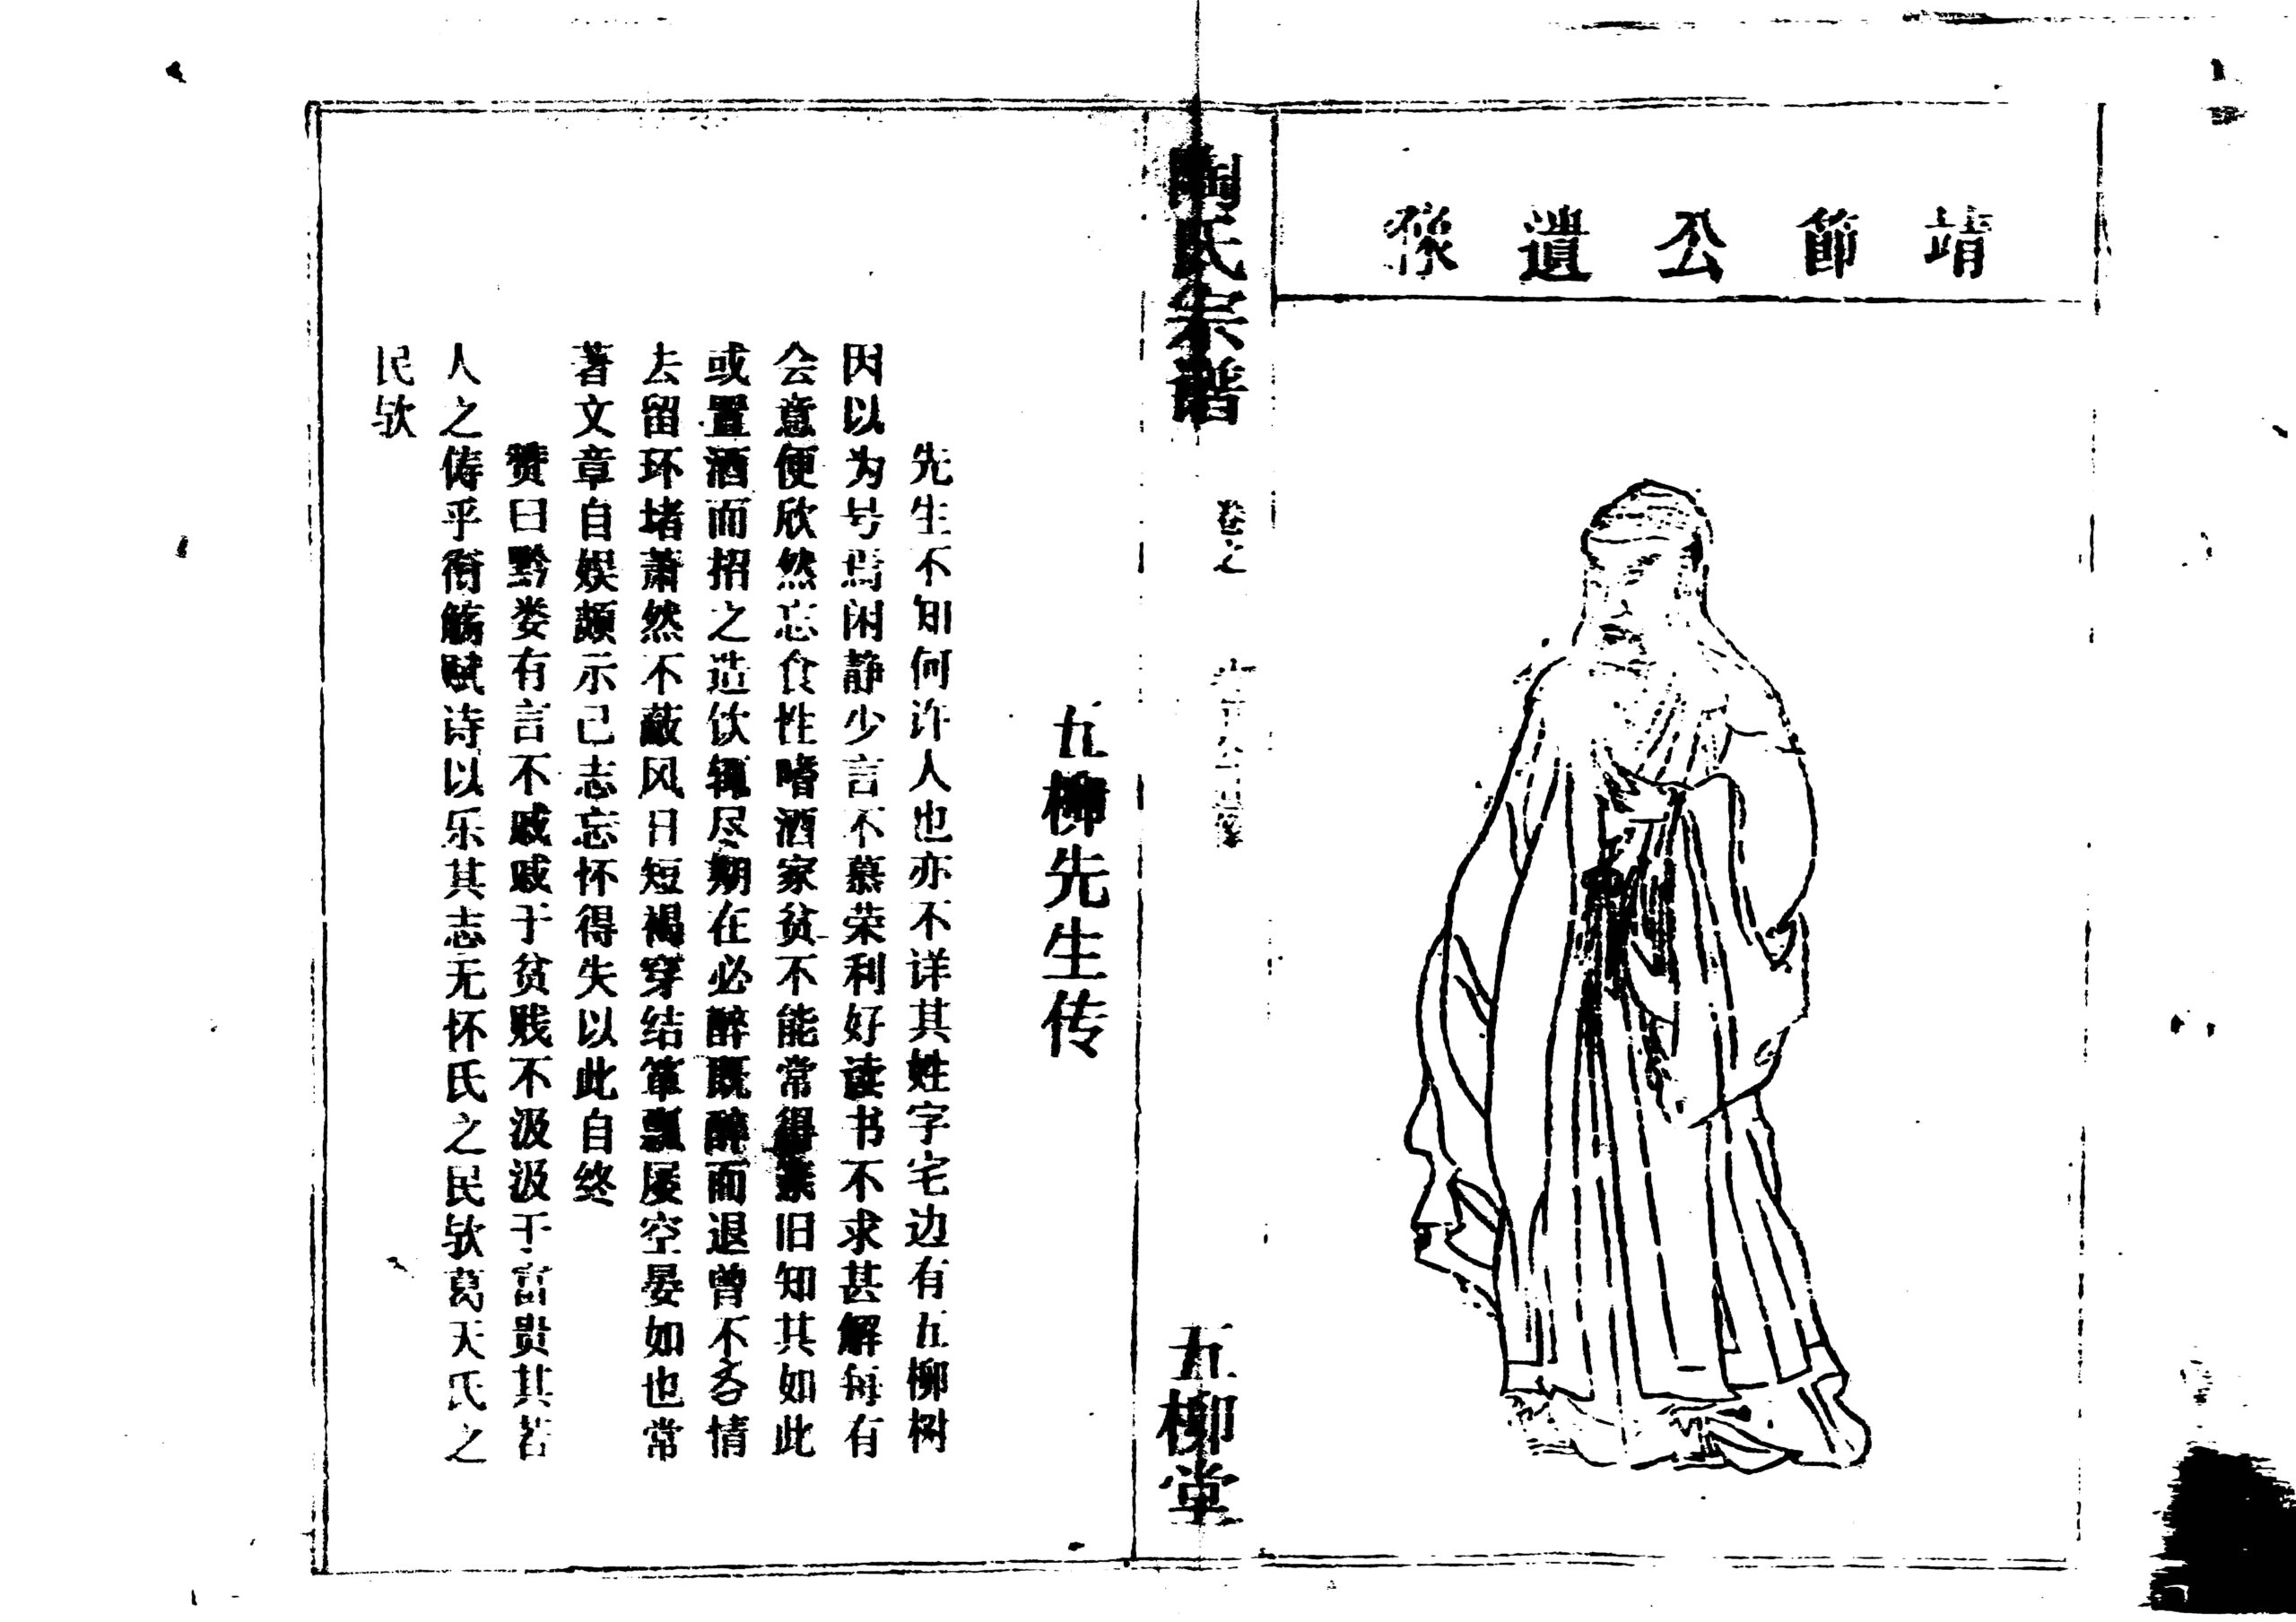 靖節公遺像
陶氏宗谱
卷之
五柳堂
五柳先生传
先生不知何许人也亦不详其姓字宅边有五柳树
因以为号焉闲静少言不慕荣利好读书不求甚解每有
会意便欣然忘食性嗜酒家贫不能常得亲旧知其如此
或置酒而招之造饮辄尽期在必醉既醉而退曾不吝情
去留环堵萧然不蔽风日短褐穿结箪瓢屡空晏如也常
著文章自娱颇示己志忘怀得失以此自终
赞曰黔娄有言不戚戚于贫贱不汲汲于富贵其若
人之俦乎衔觞赋诗以乐其志无怀氏之民欤葛天氏之
民欤